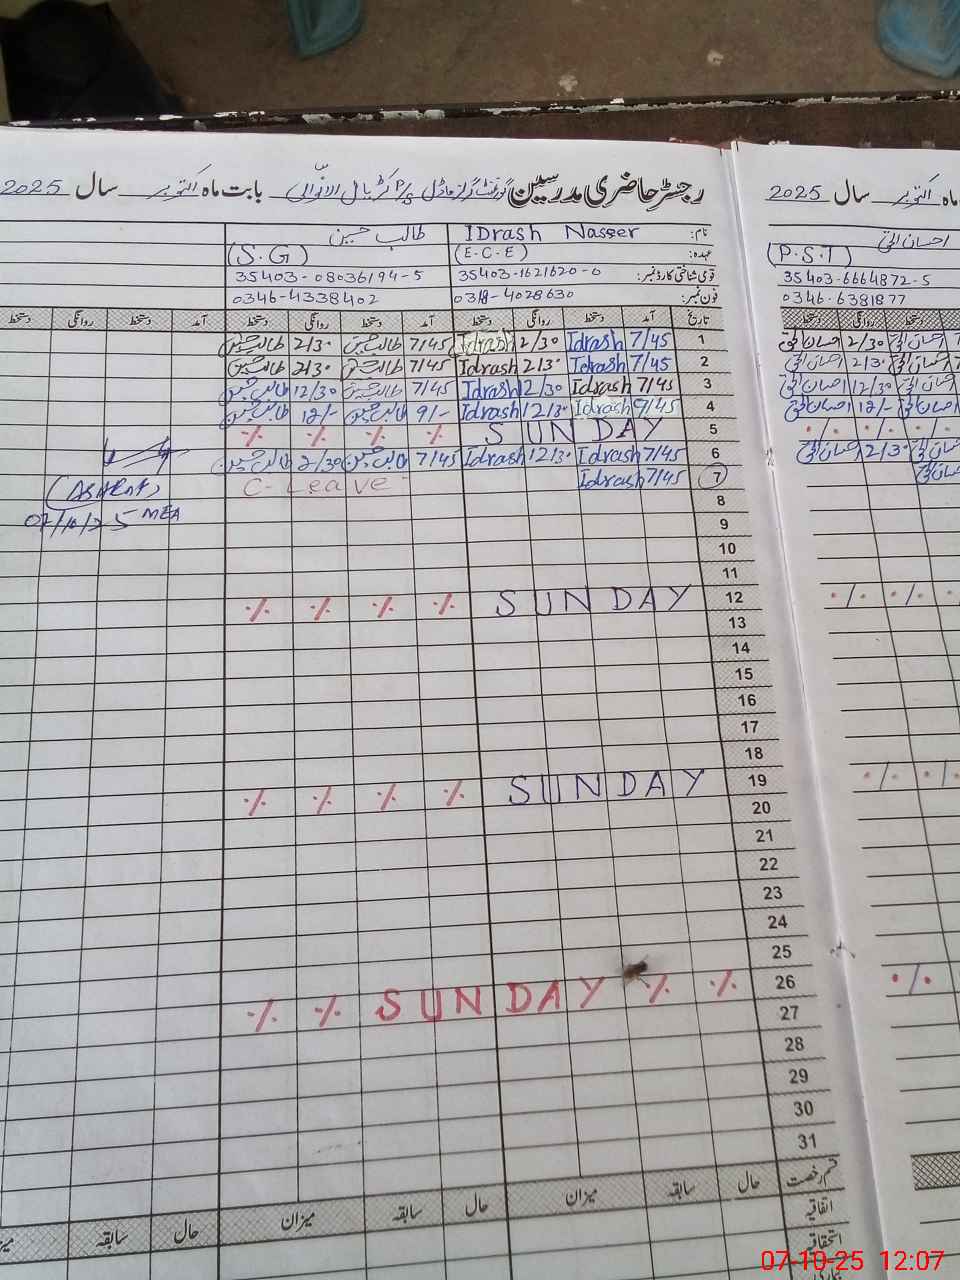 رجسٹر حاضری مدرسین گورنمنٹ گرلز ماڈل پ/س بابت ماہ اکتوبر سال 2025
نام: IDrash Nasser طالب حسین
عہدہ: (E.C.E) (S.G)
قومی شناختی کارڈ نمبر: 35403-1621620-0 35403-08036194-5
فون نمبر: 0318-4028630 0346-4338402
تاریخ آمد دستخط روانگی دستخط آمد دستخط روانگی دستخط آمد دستخط روانگی دستخط
1 7/45 Idrash 2/30 Idrash 7/45 طالب حسین 2/30 طالب حسین
2 7/45 Idrash 2/30 Idrash 7/45 طالب حسین 2/30 طالب حسین
3 7/45 Idrash 12/30 Idrash 7/45 طالب حسین 12/30 طالب حسین
4 9/45 Idrash 12/30 Idrash 9/- طالب حسین 12/- طالب حسین
5 SUNDAY ٪ ٪ ٪ ٪
6 7/45 Idrash 12/30 Idrash 7/45 طالب حسین 2/30 طالب حسین
7 7/45 Idrash C-Leave
07/10/25 MEA
8
9
10
11
12 SUNDAY ٪ ٪ ٪ ٪
13
14
15
16
17
18
19 SUNDAY ٪ ٪ ٪ ٪
20
21
22
23
24
25
26 ٪ ٪ SUNDAY ٪ ٪
27
28
29
30
31
قسم رخصت حال سابقہ میزان حال سابقہ میزان حال سابقہ
اتفاقیہ
استحقاقیہ
ماہ اکتوبر سال 2025
احسان الحق
(P.S.T)
35403-6664872-5
0346-6381877
دستخط روانگی دستخط
احسان الحق 2/30 احسان الحق 7
احسان الحق 2/30 احسان الحق
احسان الحق 12/30 احسان الحق
احسان الحق 12/- احسان الحق
٪ ٪ ٪
احسان الحق 2/30 احسان الحق
احسان الحق
٪ ٪
٪ ٪
٪
07-10-25 12:07